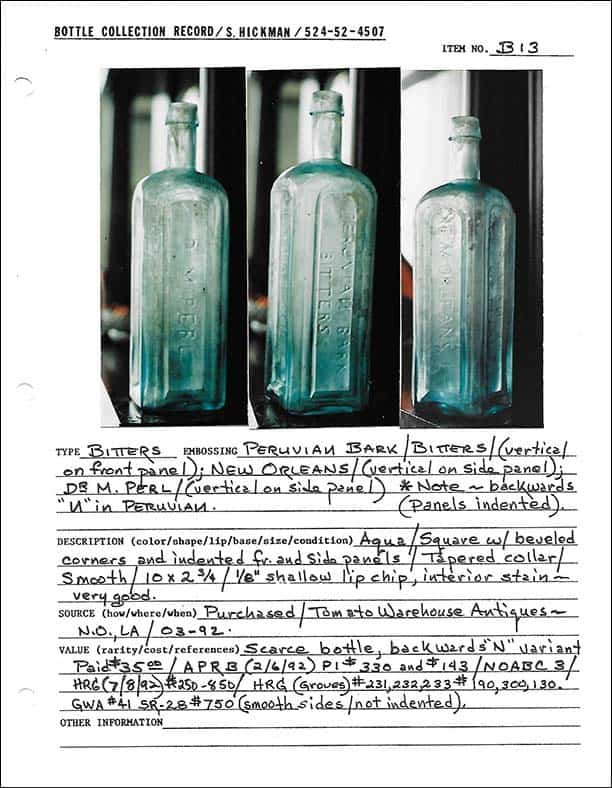 BOTTLE COLLECTION RECORD/S. HICKMAN/524-52-4507
ITEM NO. B13
M. PERL
PERUVIAN BARK
BITTERS
NEW ORLEANS
TYPE BITTERS EMBOSSING PERUVIAN BARK/BITTERS/(vertical
on front panel); NEW ORLEANS/(vertical on side panel);
DR M. PERL/(vertical on side panel) * Note ~ backwards
"N" in PERUVIAN. (Panels indented).
DESCRIPTION (color/shape/lip/base/size/condition) Aqua/Square w/ beveled
corners and indented fr. and side panels/Tapered collar/
Smooth/10 x 2 3/4/1/8" shallow lip chip, interior stain ~
very good.
SOURCE (how/where/when) Purchased/Tomato Warehouse Antiques ~
N.O., LA/03-92.
VALUE (rarity/cost/references) Scarce bottle, backwards "N" variant
Paid $35 00/APRB (2/6/92) P1 $330 and $143/NOABC 3/
HRG (7/8/92) $250-850/HRG (Groves) #231,232,233 $190,300,130.
GWA #41 SR-28 $750 (smooth sides/not indented).
OTHER INFORMATION